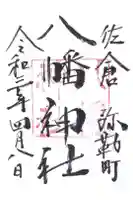 佐倉 弥勒町
八幡神社
令和三年四月八日